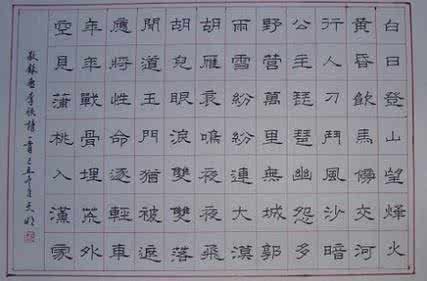 白日登山望烽火
黃昏飲馬傍交河
行人刁鬥風沙暗
公主琵琶幽怨多
野營萬里無城郭
雨雪紛紛連大漠
胡雁哀鳴夜夜飛
胡兒眼淚雙雙落
聞道玉門猶被遮
應將性命逐輕車
年年戰骨埋荒外
空見蒲桃入漢家
敬錄唐李頎詩一首己丑年